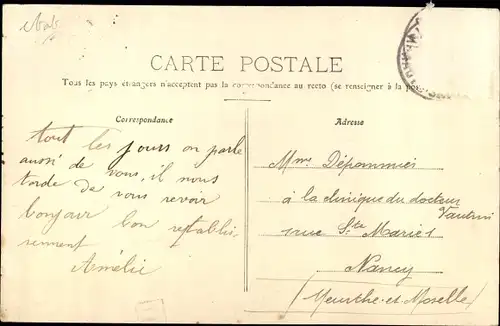 CARTE POSTALE
Tous les pays étrangers n'acceptent pas la correspondance au recto (se renseigner à la pos
Correspondance
tout les jours on parle
aussi de vous, il nous
tarde de vous revoir
bonjour bon reptablis
sement
Amélie
Adresse
Mme Dépommier
à la clinique du docteur
Vautrin
rue Ste Maries
Nancy
(Meurthe-et-Moselle)